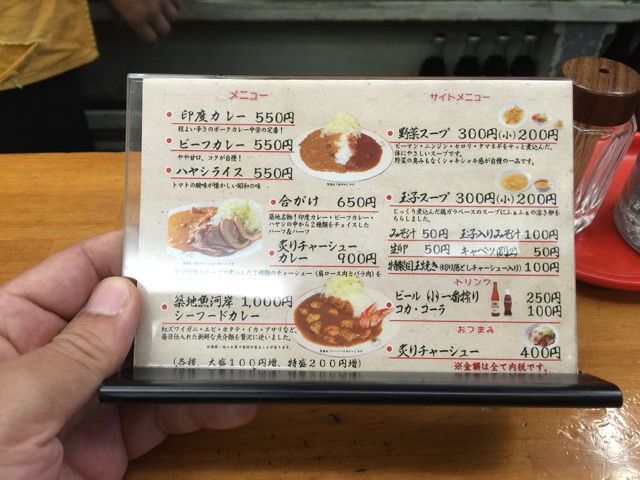 メニュー
印度カレー 550円
程よい辛さのポークカレー中栄の定番!
ビーフカレー 550円
やや甘口、コクが自慢!
ハヤシライス 550円
トマトの酸味が懐かしい昭和の味
合がけ 650円
築地名物!印度カレー・ビーフカレー・
ハヤシの中から2種類をチョイスした
ハーフ&ハーフ
炙りチャーシュー
カレー 900円
煮込んだ2種類のチャーシュー(肩ロース肉とバラ肉)を
築地魚河岸 1,000円
シーフードカレー
紅ズワイガニ・エビ・ホタテ・イカ・アサリなど、
毎日仕入れた新鮮な魚介類を贅沢に使いました。
(各種、大盛100円増、特盛200円増)
サイドメニュー
野菜スープ 300円(小)200円
ピーマン・ニンジン・セロリ・タマネギをサッと煮込んだ、
体にやさしいスープです。
野菜の臭みもなくシャキシャキ感が自慢の一品です。
玉子スープ 300円(小)200円
じっくり煮込んだ鶏ガラベースのスープにふぁふぁの溶き卵を
もらしました。
みそ汁 50円 玉子入りみそ汁 100円
生卵 50円 キャベツ 50円
特製目玉焼き(切り落としチャーシュー入り)100円
ドリンク
ビール(小)一番搾り 250円
コカ・コーラ 100円
おつまみ
炙りチャーシュー 400円
※金額は全て内税です。